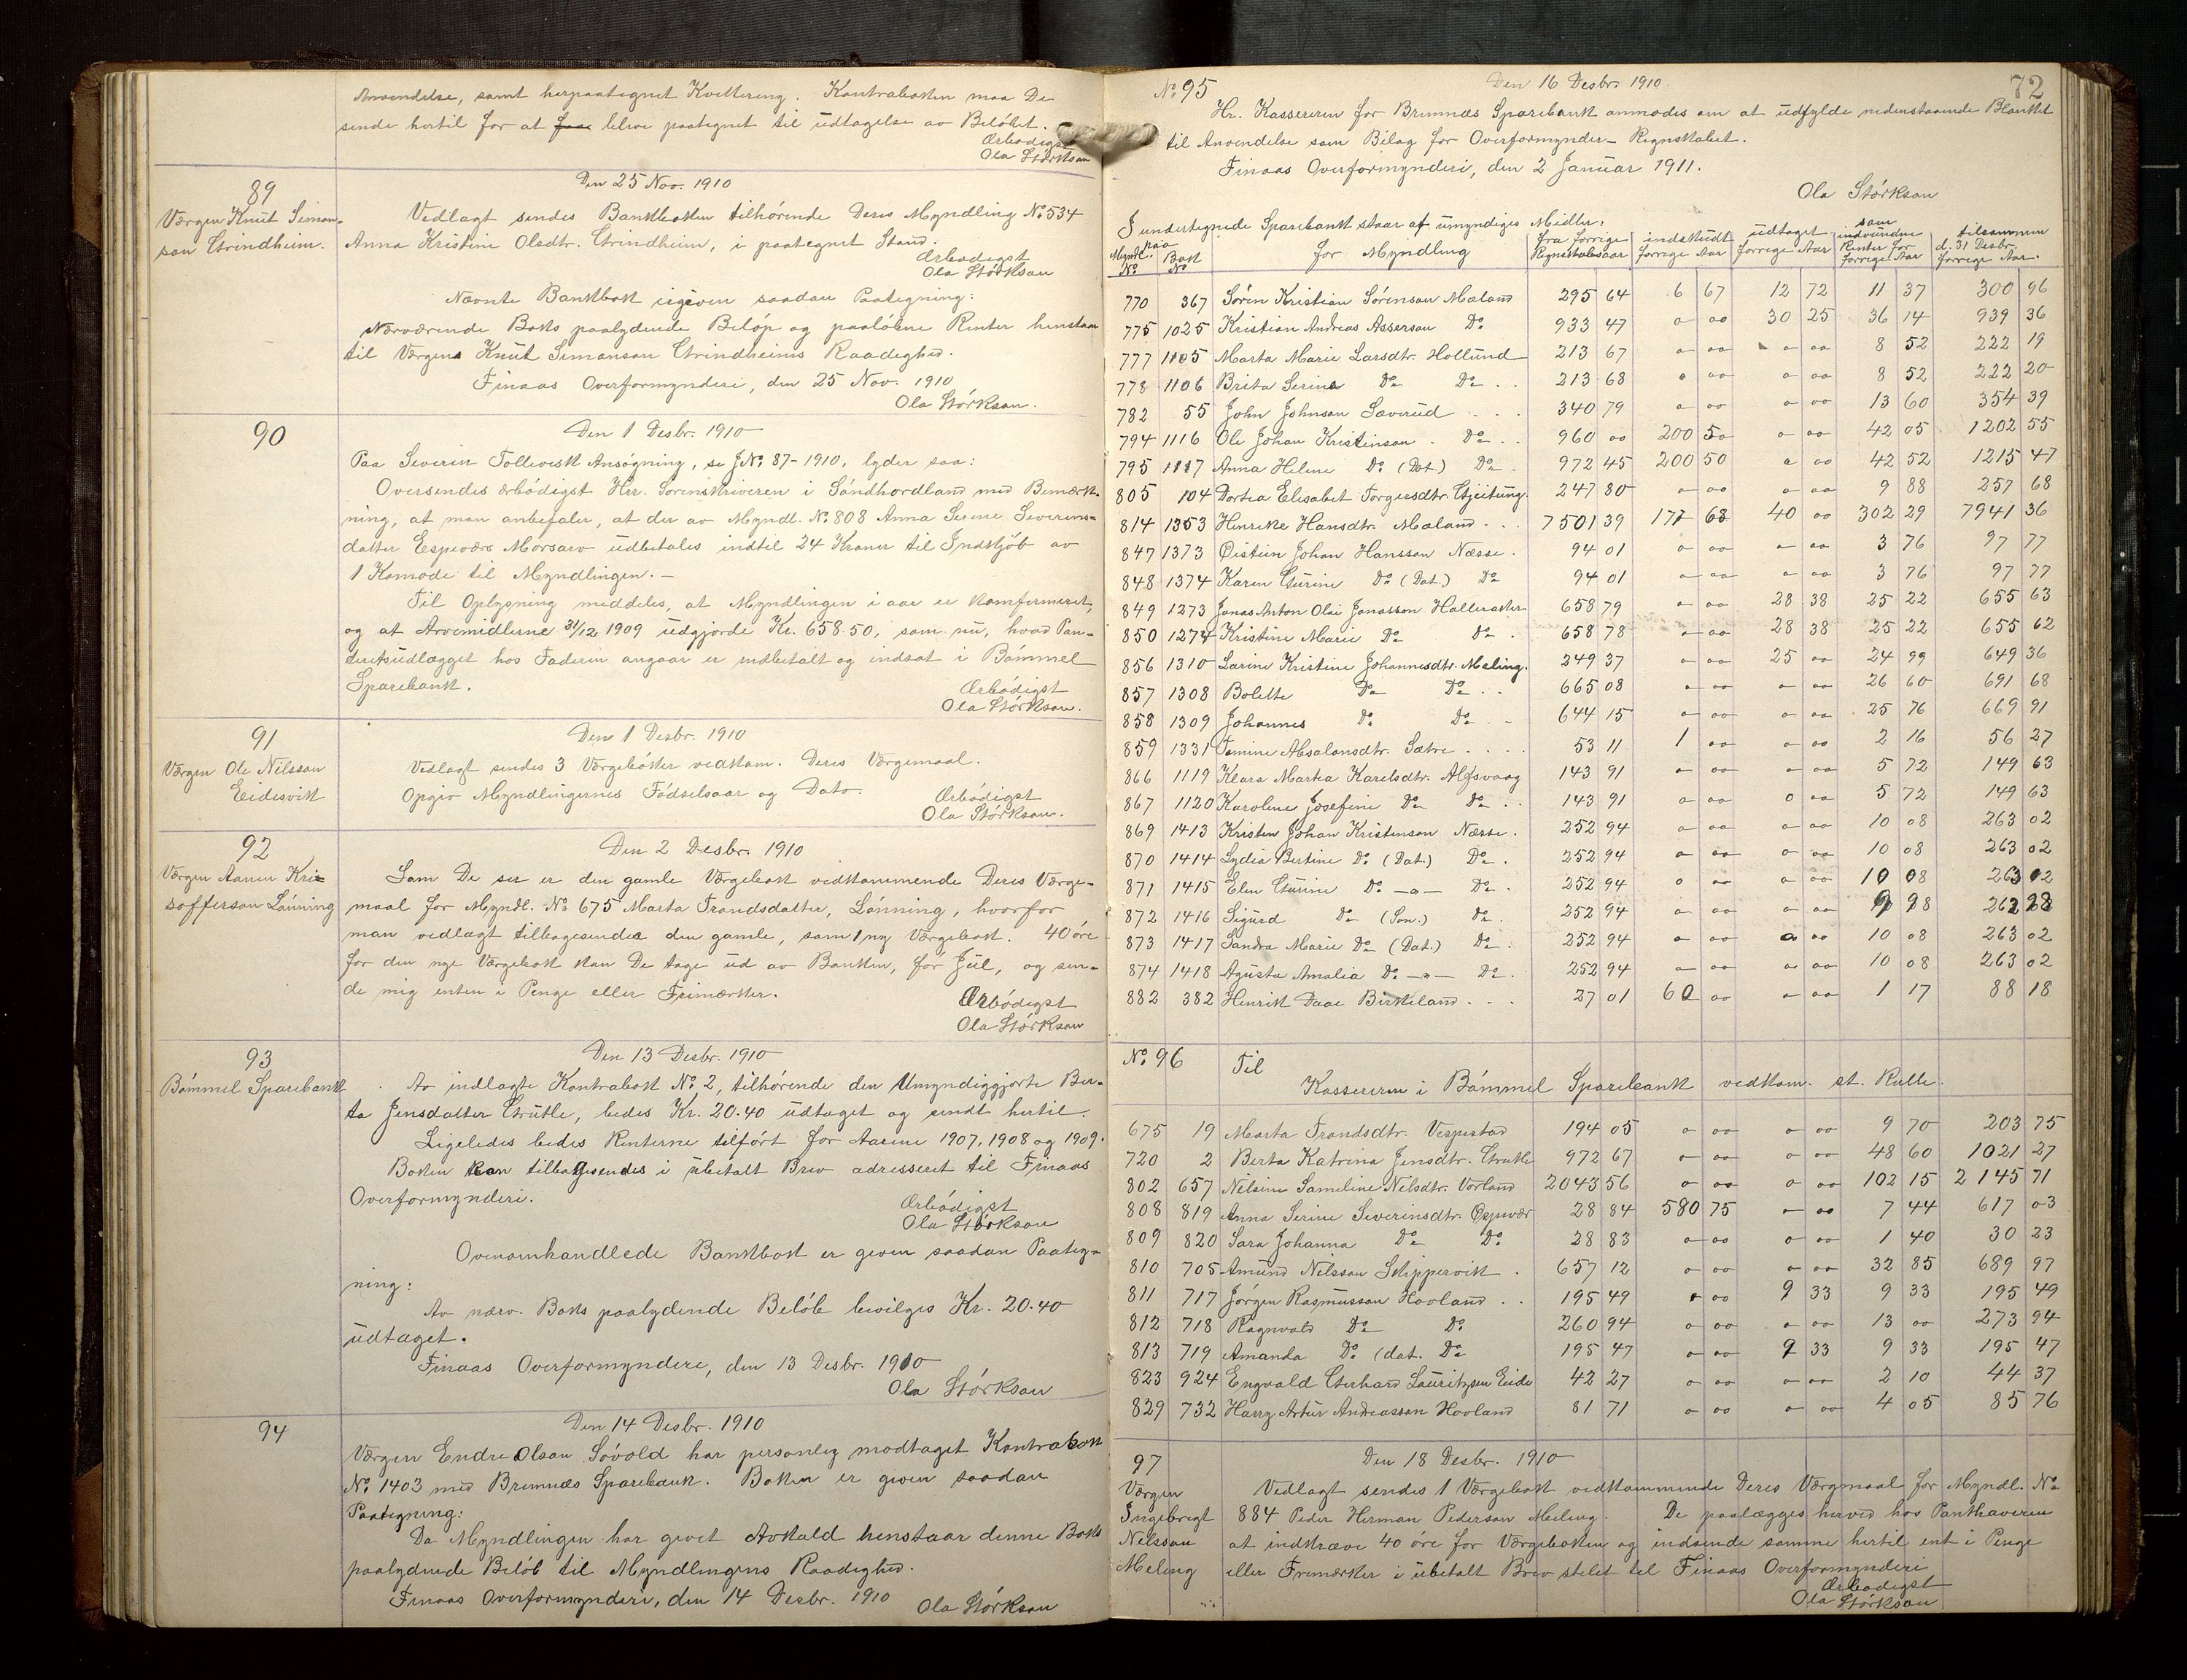 Anvendelse, samt herpaategnet Kvittering. Kontraboken maa De
sende hertil for at faae blive paategnet til Udtagelse av Beløbet.
Ærbødigst
Ola Størkson
89
Den 25 Nov. 1910
Værgen Knut Simon-
son Grindheim.
Vedlagt sendes Bankboken tilhørende Deres Myndling No 534
Anna Kristine Olsdtr. Grindheim, i paategnet Stand.
Ærbødigst
Ola Størkson
Nævnte Bankbok isgiven saadan Paategning:
Nærværende Boks paalydende Beløp og paaløbne Renter henstaar
til Værgens Knut Simonson Grindheims Raadighed.
Finaas Overformynderi, den 25 Nov. 1910
Ola Størkson.
90
Den 1 Desbr. 1910
Paa Severin Tollevsk Ansøgning, se JNo. 87-1910, lyder saa:
Oversendes ærbødigst Hrr. Sorenskriveren i Søndhordland med Bemærk-
ning, at man anbefaler, at der av Myndl. No. 808 Anna Serine Severins-
datter Espevær Morsarv udbetales indtil 24 Kroner til Indkjøb av
1 Komode til Myndlingen. —
Til Oplysning meddeles, at Myndlingen i aar er konfirmeret,
og at Arvemidlerne 31/12 1909 udgjorde Kr. 658.50, som nu, hvad Pan-
teretsudlægget hos Faderen angaar er indbetalt og indsat i Bømmel
Sparebank.
Ærbødigst
Ola Størkson.
91
Den 1 Desbr. 1910
Værgen Ole Nilsson
Eidesvik
Vedlagt sendes 3 Værgebøker vedkom. Deres Værgemaal.
Opgiv Myndlingernes Fødselsaar og Dato.
Ærbødigst
Ola Størkson.
92
Den 2 Desbr. 1910
Værgen Aanen Kri-
sofferson Lønning
Som De ser er den gamle Værgebok vedkommende Deres Værge-
maal for Myndl. No. 675 Marta Trondsdatter, Lønning, hvorfor
man vedlagt tilbagesender den gamle, som 1 ny Værgebok. 40 øre
for den nye Værgebok kan De tage ud av Banken, før Jul, og sen-
de mig enten i Penge eller Frimærker.
Ærbødigst
Ola Størkson
93
Den 13 Desbr. 1910
Bømmel Sparebank
Av indlagte Kontrabok No. 2, tilhørende den Umyndiggjorte Ber-
ta Jensdatter Grutle, bedes Kr. 20.40 udtaget og sendt hertil.
Ligeledes bedes Renterne tilført for Aarene 1907, 1908 og 1909.
Boken kan tilbagesendes i ubetalt Brev adresseret til Finaas
Overformynderi.
Ærbødigst
Ola Størkson
Ovenomhandlede Bankbok er given saadan Paateg-
ning:
Av nærv. Boks paalydende Beløb bevilges Kr. 20.40
udtaget.
Finaas Overformyndere, den 13 Desbr. 1910
Ola Størkson
94
Den 14 Desbr. 1910
Værgen Endre Olson Søvold har personlig modtaget Kontrabok
No. 1403 med Bremnæs Sparebank. Boken er given saadan
Paategning:
Da Myndlingen har givet Avkald henstaar denne Boks
paalydende Beløb til Myndlingens Raadighed.
Finaas Overformynderi, den 14 Desbr. 1910
Ola Størkson
No. 95
Den 16 Desbr. 1910
72
Hr. Kassereren for Bremnæs Sparebank anmodes om at udfylde nedenstaaende Blanket
til Anvendelse som Bilag for Overformynder-Regnskabet.
Finaas Overformynderi, den 2 Januar 1911.
Ola Størkson
I undertegnede Sparebank staar af umyndiges Midler:
Myndl. No. paa Bok No. for Myndling fra forrige Regnskabsaar indskudt forrige Aar udtaget forrige Aar som indvundne Renter for forrige Aar tilsammen d. 31 Desbr. forrige Aar.
770 367 Søren Kristian Sørenson Mæland 295 64 6 67 12 72 11 37 300 96
775 1025 Kristian Andreas Asserson Do 933 47 o oo 30 25 36 14 939 36
777 1105 Marta Marie Larsdtr. Hollund 213 67 o oo o oo 8 52 222 19
778 1106 Brita Serina Do Do 213 68 o oo o oo 8 52 222 20
782 55 John Johnson Sæverud 340 79 o oo o oo 13 60 354 39
794 1116 Ole Johan Kristenson Do 960 oo 200 50 o oo 42 05 1202 55
795 1117 Anna Helene Do (Dat.) Do 972 45 200 50 o oo 42 52 1215 47
805 104 Dortea Elisabet Torgersdtr. Gjeitung. 247 80 o oo o oo 9 88 257 68
814 1353 Henrikke Hansdtr. Mæland 7501 39 177 68 40 oo 302 29 7941 36
847 1373 Øistein Johan Hansson Næsse. 94 01 o oo o oo 3 76 97 77
848 1374 Karen Gurine Do (Dat.) Do 94 01 o oo o oo 3 76 97 77
849 1273 Jonas Anton Olai Jonasson Halleraker 658 79 o oo 28 38 25 22 655 63
850 1274 Kristine Marie Do Do 658 78 o oo 28 38 25 22 655 62
856 1310 Larine Kristine Johannesdtr. Meling. 249 37 o oo 25 oo 24 99 649 36
857 1308 Bolette Do Do 665 08 o oo o oo 26 60 691 68
858 1309 Johannes Do Do 644 15 o oo o oo 25 76 669 91
859 1331 Tomine Absalonsdtr. Sætre 53 11 1 oo o oo 2 16 56 27
866 1119 Klara Marta Karelsdtr. Alfsvaag 143 91 o oo o oo 5 72 149 63
867 1120 Karoline Josefine Do Do 143 91 o oo o oo 5 72 149 63
869 1413 Kristen Johan Kristenson Næsse. 252 94 o oo o oo 10 08 263 02
870 1414 Lydia Bertine Do (Dat.) Do 252 94 o oo o oo 10 08 263 02
871 1415 Elen Gurine Do —o— Do 252 94 o oo o oo 10 08 263 02
872 1416 Sigurd Do (Søn.) Do 252 94 o oo o oo 9 98 262 98
873 1417 Sandra Marie Do (Dat.) Do 252 94 o oo o oo 10 08 263 02
874 1418 Agusta Amalia Do —o— Do 252 94 o oo o oo 10 08 263 02
882 382 Henrik Daae Birkeland 27 01 60 oo o oo 1 17 88 18
No. 96 Til
Kassereren i Bømmel Sparebank vedkom. st. Rulle.
675 19 Marta Trondsdtr. Vespestad 194 05 o oo o oo 9 70 203 75
720 2 Berta Katrina Jensdtr. Grutle 972 67 o oo o oo 48 60 1021 27
802 657 Nelsine Sameline Nelsdtr. Vorland 2043 56 o oo o oo 102 15 2145 71
808 819 Anna Serine Severinsdtr. Espevær 28 84 580 75 o oo 7 44 617 03
809 820 Sara Johanna Do Do 28 83 o oo o oo 1 40 30 23
810 705 Amund Nilsson Skippervik 657 12 o oo o oo 32 85 689 97
811 717 Jørgen Rasmusson Hovland 195 49 o oo 9 33 9 33 195 49
812 718 Ragnvald Do Do 260 94 o oo o oo 13 oo 273 94
813 719 Amanda Do (dat. Do 195 47 o oo 9 33 9 33 195 47
823 924 Engvald Gerhard Lauritzsen Eide 42 27 o oo o oo 2 10 44 37
829 732 Harry Artur Andreasson Hovland 81 71 o oo o oo 4 05 85 76
97
Den 18 Desbr. 1910
Værgen
Ingebregt
Nelsson
Meling
Vedlagt sendes 1 Værgebok vedkommende Deres Værgmaal for Myndl. No.
884 Peder Herman Pederson Meling. De paalægges herved hos Panthaveren
at indkræve 40 øre for Værgeboken og indsende samme hertil ent i Penge
eller Frimærker i ubetalt Brev stilet til Finaas Overformynderi
Ærbødigst
Ola Størkson